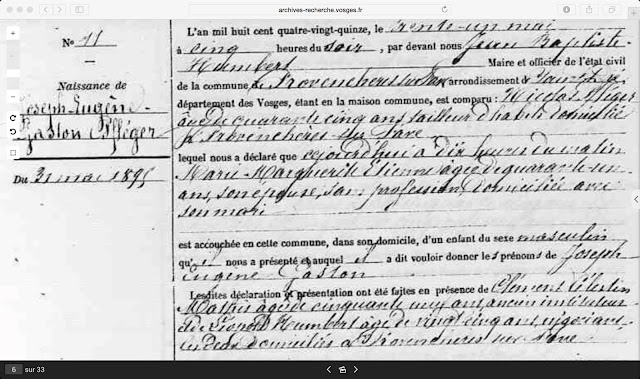 archives-recherche.vosges.fr
No 11
Naissance de
Joseph Eugène
Gaston Pfléger
Du 31 mai 1895
L'an mil huit cent quatre-vingt-quinze, le trente-un mai
à cinq heures du soir, par devant nous Jean Baptiste
Humbert Maire et officier de l'état civil
de la commune de Provenchères sur Fave arrondissement de Saint-Dié
département des Vosges, étant en la maison commune, est comparu : Nicolas Pfléger
âgé de quarante cinq ans tailleur d'habits domicilié
à Provenchères sur Fave
lequel nous a déclaré que cejourd'hui à dix heures du matin
Marie Marguerite Etienne âgée de quarante-un
ans, son épouse, sans profession, domiciliée avec
son mari
est accouchée en cette commune, dans son domicile, d'un enfant du sexe masculin
qu'il nous a présenté et auquel il a dit vouloir donner les prénoms de Joseph
Eugène Gaston
Lesdites déclaration et présentation ont été faites en présence de Clément Célestin
Mathis âgé de cinquante ans, ancien instituteur
et de Léopold Humbert âgé de vingt cinq ans, négociant
les deux domiciliés à Provenchères sur Fave
6 sur 33